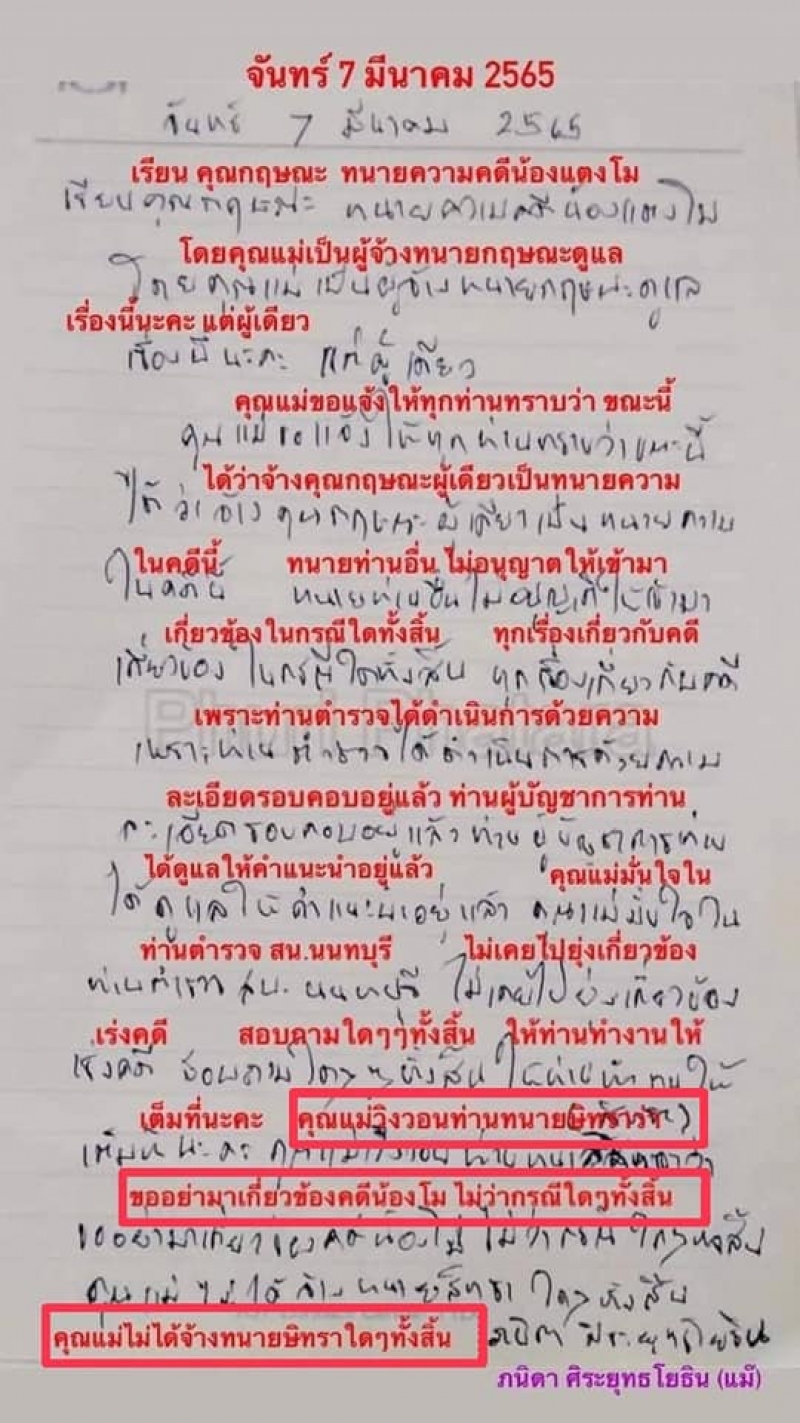 จันทร์ 7 มีนาคม 2565
จันทร์ 7 มีนาคม 2565
เรียน คุณกฤษณะ ทนายความคดีน้องแตงโม
เรียนคุณกฤษณะ ทนายความคดีน้องแตงโม
โดยคุณแม่เป็นผู้จ้วงทนายกฤษณะดูแล
โดยคุณแม่เป็นผู้จ้างทนายกฤษณะดูแล
เรื่องนี้นะคะ แต่ผู้เดียว
เรื่องนี้นะคะ แต่ผู้เดียว
คุณแม่ขอแจ้งให้ทุกท่านทราบว่า ขณะนี้
คุณแม่ขอแจ้งให้ทุกท่านทราบว่าขณะนี้
ได้ว่าจ้างคุณกฤษณะผู้เดียวเป็นทนายความ
ได้ว่าจ้างคุณกฤษณะผู้เดียวเป็นทนายความ
ในคดีนี้ ทนายท่านอื่น ไม่อนุญาตให้เข้ามา
ในคดีนี้ ทนายท่านอื่นไม่อนุญาตให้เข้ามา
เกี่ยวข้องในกรณีใดทั้งสิ้น ทุกเรื่องเกี่ยวกับคดี
เกี่ยวข้องในกรณีใดทั้งสิ้น ทุกเรื่องเกี่ยวกับคดี
เพราะท่านตำรวจได้ดำเนินการด้วยความ
เพราะท่านตำรวจได้ดำเนินการด้วยความ
ละเอียดรอบคอบอยู่แล้ว ท่านผู้บัญชาการท่าน
ละเอียดรอบคอบอยู่แล้ว ท่านผู้บัญชาการท่าน
ได้ดูแลให้คำแนะนำอยู่แล้ว คุณแม่มั่นใจใน
ได้ดูแลให้คำแนะนำอยู่แล้ว คุณแม่มั่นใจใน
ท่านตำรวจ สน.นนทบุรี ไม่เคยไปยุ่งเกี่ยวข้อง
ท่านตำรวจ สน. นนทบุรี ไม่เคยไปยุ่งเกี่ยวข้อง
เร่งคดี สอบถามใดๆๆทั้งสิ้น ให้ท่านทำงานให้
เร่งคดี สอบถามใดๆ ๆ ทั้งสิ้น ให้ท่านทำงานให้
เต็มที่นะคะ คุณแม่วิงวอนท่านทนายษิทราว่า
เต็มที่นะคะ คุณแม่วิงวอนท่านทนาย
ขออย่ามาเกี่ยวข้องคดีน้องโม ไม่ว่ากรณีใดๆทั้งสิ้น
ขออย่ามาเกี่ยวข้องคดีน้องโม ไม่ว่ากรณีใดๆทั้งสิ้น
คุณแม่ไม่ได้จ้างทนายสิทราใดๆทั้งสิ้น
คุณแม่ไม่ได้จ้างทนายษิทราใดๆทั้งสิ้น ภนิดา ศิระยุทธโยธิน
ภนิดา ศิระยุทธโยธิน (แม่)